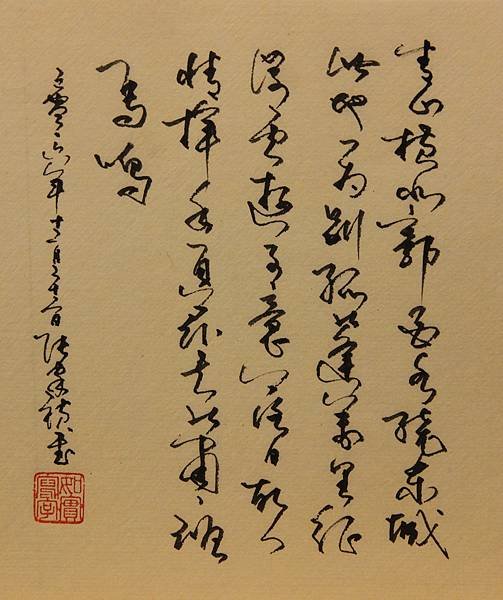 青山橫北郭白水繞東城
此地一為別孤蓬萬里征
浮雲遊子意落日故人
情揮手自茲去蕭〻班
馬鳴
二零〻六年 月 日 書
如實